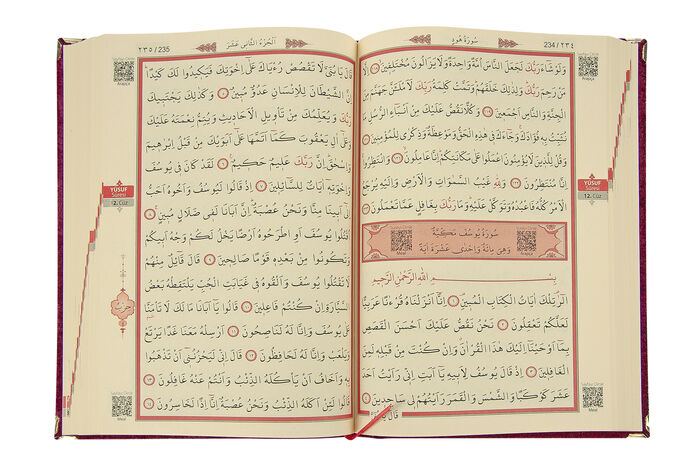 234 / ٢٣٤
سُورَةُ هُودٍ
وَلَوْ شَاءَ رَبُّكَ لَجَعَلَ النَّاسَ اُمَّةً وَاحِدَةً وَلَا يَزَالُونَ مُخْتَلِفِينَ ﴿١١٨﴾ اِلَّا
مَنْ رَحِمَ رَبُّكَ وَلِذٰلِكَ خَلَقَهُمْ وَتَمَّتْ كَلِمَةُ رَبِّكَ لَاَمْلَـَٔنَّ جَهَنَّمَ مِنَ
الْجِنَّةِ وَالنَّاسِ اَجْمَعِينَ ﴿١١٩﴾ وَكُلًّا نَقُصُّ عَلَيْكَ مِنْ اَنْبَاءِ الرُّسُلِ مَا
نُثَبِّتُ بِهِ فُؤَادَكَ وَجَاءَكَ فِي هٰذِهِ الْحَقُّ وَمَوْعِظَةٌ وَذِكْرٰى لِلْمُؤْمِنِينَ ﴿١٢٠﴾
وَقُلْ لِلَّذِينَ لَا يُؤْمِنُونَ اعْمَلُوا عَلٰى مَكَانَتِكُمْ اِنَّا عَامِلُونَ ﴿١٢١﴾ وَانْتَظِرُوا
اِنَّا مُنْتَظِرُونَ ﴿١٢٢﴾ وَلِلّٰهِ غَيْبُ السَّمٰوَاتِ وَالْاَرْضِ وَاِلَيْهِ يُرْجَعُ
الْاَمْرُ كُلُّهُ فَاعْبُدْهُ وَتَوَكَّلْ عَلَيْهِ وَمَا رَبُّكَ بِغَافِلٍ عَمَّا تَعْمَلُونَ ﴿١٢٣﴾
سُورَةُ يُوسُفَ مَكِّيَّةٌ
وَهِيَ مِائَةٌ وَاِحْدٰى عَشْرَةَ اٰيَةً
Meal
Arapça
بِسْمِ اللّٰهِ الرَّحْمٰنِ الرَّحِيمِ
الٓرٰ تِلْكَ اٰيَاتُ الْكِتَابِ الْمُبِينِ ﴿١﴾ اِنَّا اَنْزَلْنَاهُ قُرْءٰنًا عَرَبِيًّا
لَعَلَّكُمْ تَعْقِلُونَ ﴿٢﴾ نَحْنُ نَقُصُّ عَلَيْكَ اَحْسَنَ الْقَصَصِ
بِمَا اَوْحَيْنَا اِلَيْكَ هٰذَا الْقُرْاٰنَ وَاِنْ كُنْتَ مِنْ قَبْلِهِ لَمِنَ
الْغَافِلِينَ ﴿٣﴾ اِذْ قَالَ يُوسُفُ لِاَبِيهِ يَا اَبَتِ اِنِّي رَاَيْتُ اَحَدَ
عَشَرَ كَوْكَبًا وَالشَّمْسَ وَالْقَمَرَ رَاَيْتُهُمْ لِي سَاجِدِينَ ﴿٤﴾
قَالَ يَا بُنَيَّ
Arapça
YUSUF
Sûresi
12. Cüz
Meal
235 / ٢٣٥
اَلْجُزْءُ الثَّانِي عَشَرَ
قَالَ يَا بُنَيَّ لَا تَقْصُصْ رُءْيَاكَ عَلٰى اِخْوَتِكَ فَيَكِيدُوا لَكَ كَيْدًا
اِنَّ الشَّيْطَانَ لِلْاِنْسَانِ عَدُوٌّ مُبِينٌ ﴿٥﴾ وَكَذٰلِكَ يَجْتَبِيكَ
رَبُّكَ وَيُعَلِّمُكَ مِنْ تَأْوِيلِ الْاَحَادِيثِ وَيُتِمُّ نِعْمَتَهُ عَلَيْكَ
وَعَلٰى اٰلِ يَعْقُوبَ كَمَا اَتَمَّهَا عَلٰى اَبَوَيْكَ مِنْ قَبْلُ اِبْرٰهِيمَ
وَاِسْحٰقَ اِنَّ رَبَّكَ عَلِيمٌ حَكِيمٌ ﴿٦﴾ لَقَدْ كَانَ فِي يُوسُفَ
وَاِخْوَتِهِ اٰيَاتٌ لِلسَّائِلِينَ ﴿٧﴾ اِذْ قَالُوا لَيُوسُفُ وَاَخُوهُ اَحَبُّ
اِلٰى اَبِينَا مِنَّا وَنَحْنُ عُصْبَةٌ اِنَّ اَبَانَا لَفِي ضَلَالٍ مُبِينٍ ﴿٨﴾
اُقْتُلُوا يُوسُفَ اَوِ اطْرَحُوهُ اَرْضًا يَخْلُ لَكُمْ وَجْهُ اَبِيكُمْ
وَتَكُونُوا مِنْ بَعْدِهِ قَوْمًا صَالِحِينَ ﴿٩﴾ قَالَ قَائِلٌ مِنْهُمْ
لَا تَقْتُلُوا يُوسُفَ وَاَلْقُوهُ فِي غَيَابَتِ الْجُبِّ يَلْتَقِطْهُ بَعْضُ
السَّيَّارَةِ اِنْ كُنْتُمْ فَاعِلِينَ ﴿١٠﴾ قَالُوا يَا اَبَانَا مَا لَكَ لَا تَأْمَنَّا
عَلٰى يُوسُفَ وَاِنَّا لَهُ لَنَاصِحُونَ ﴿١١﴾ اَرْسِلْهُ مَعَنَا غَدًا يَرْتَعْ
وَيَلْعَبْ وَاِنَّا لَهُ لَحَافِظُونَ ﴿١٢﴾ قَالَ اِنِّي لَيَحْزُنُنِي اَنْ تَذْهَبُوا
بِهِ وَاَخَافُ اَنْ يَأْكُلَهُ الذِّئْبُ وَاَنْتُمْ عَنْهُ غَافِلُونَ ﴿١٣﴾
قَالُوا لَئِنْ اَكَلَهُ الذِّئْبُ وَنَحْنُ عُصْبَةٌ اِنَّا اِذًا لَخَاسِرُونَ ﴿١٤﴾
Arapça
YUSUF
Sûresi
12. Cüz
حزب
Meal